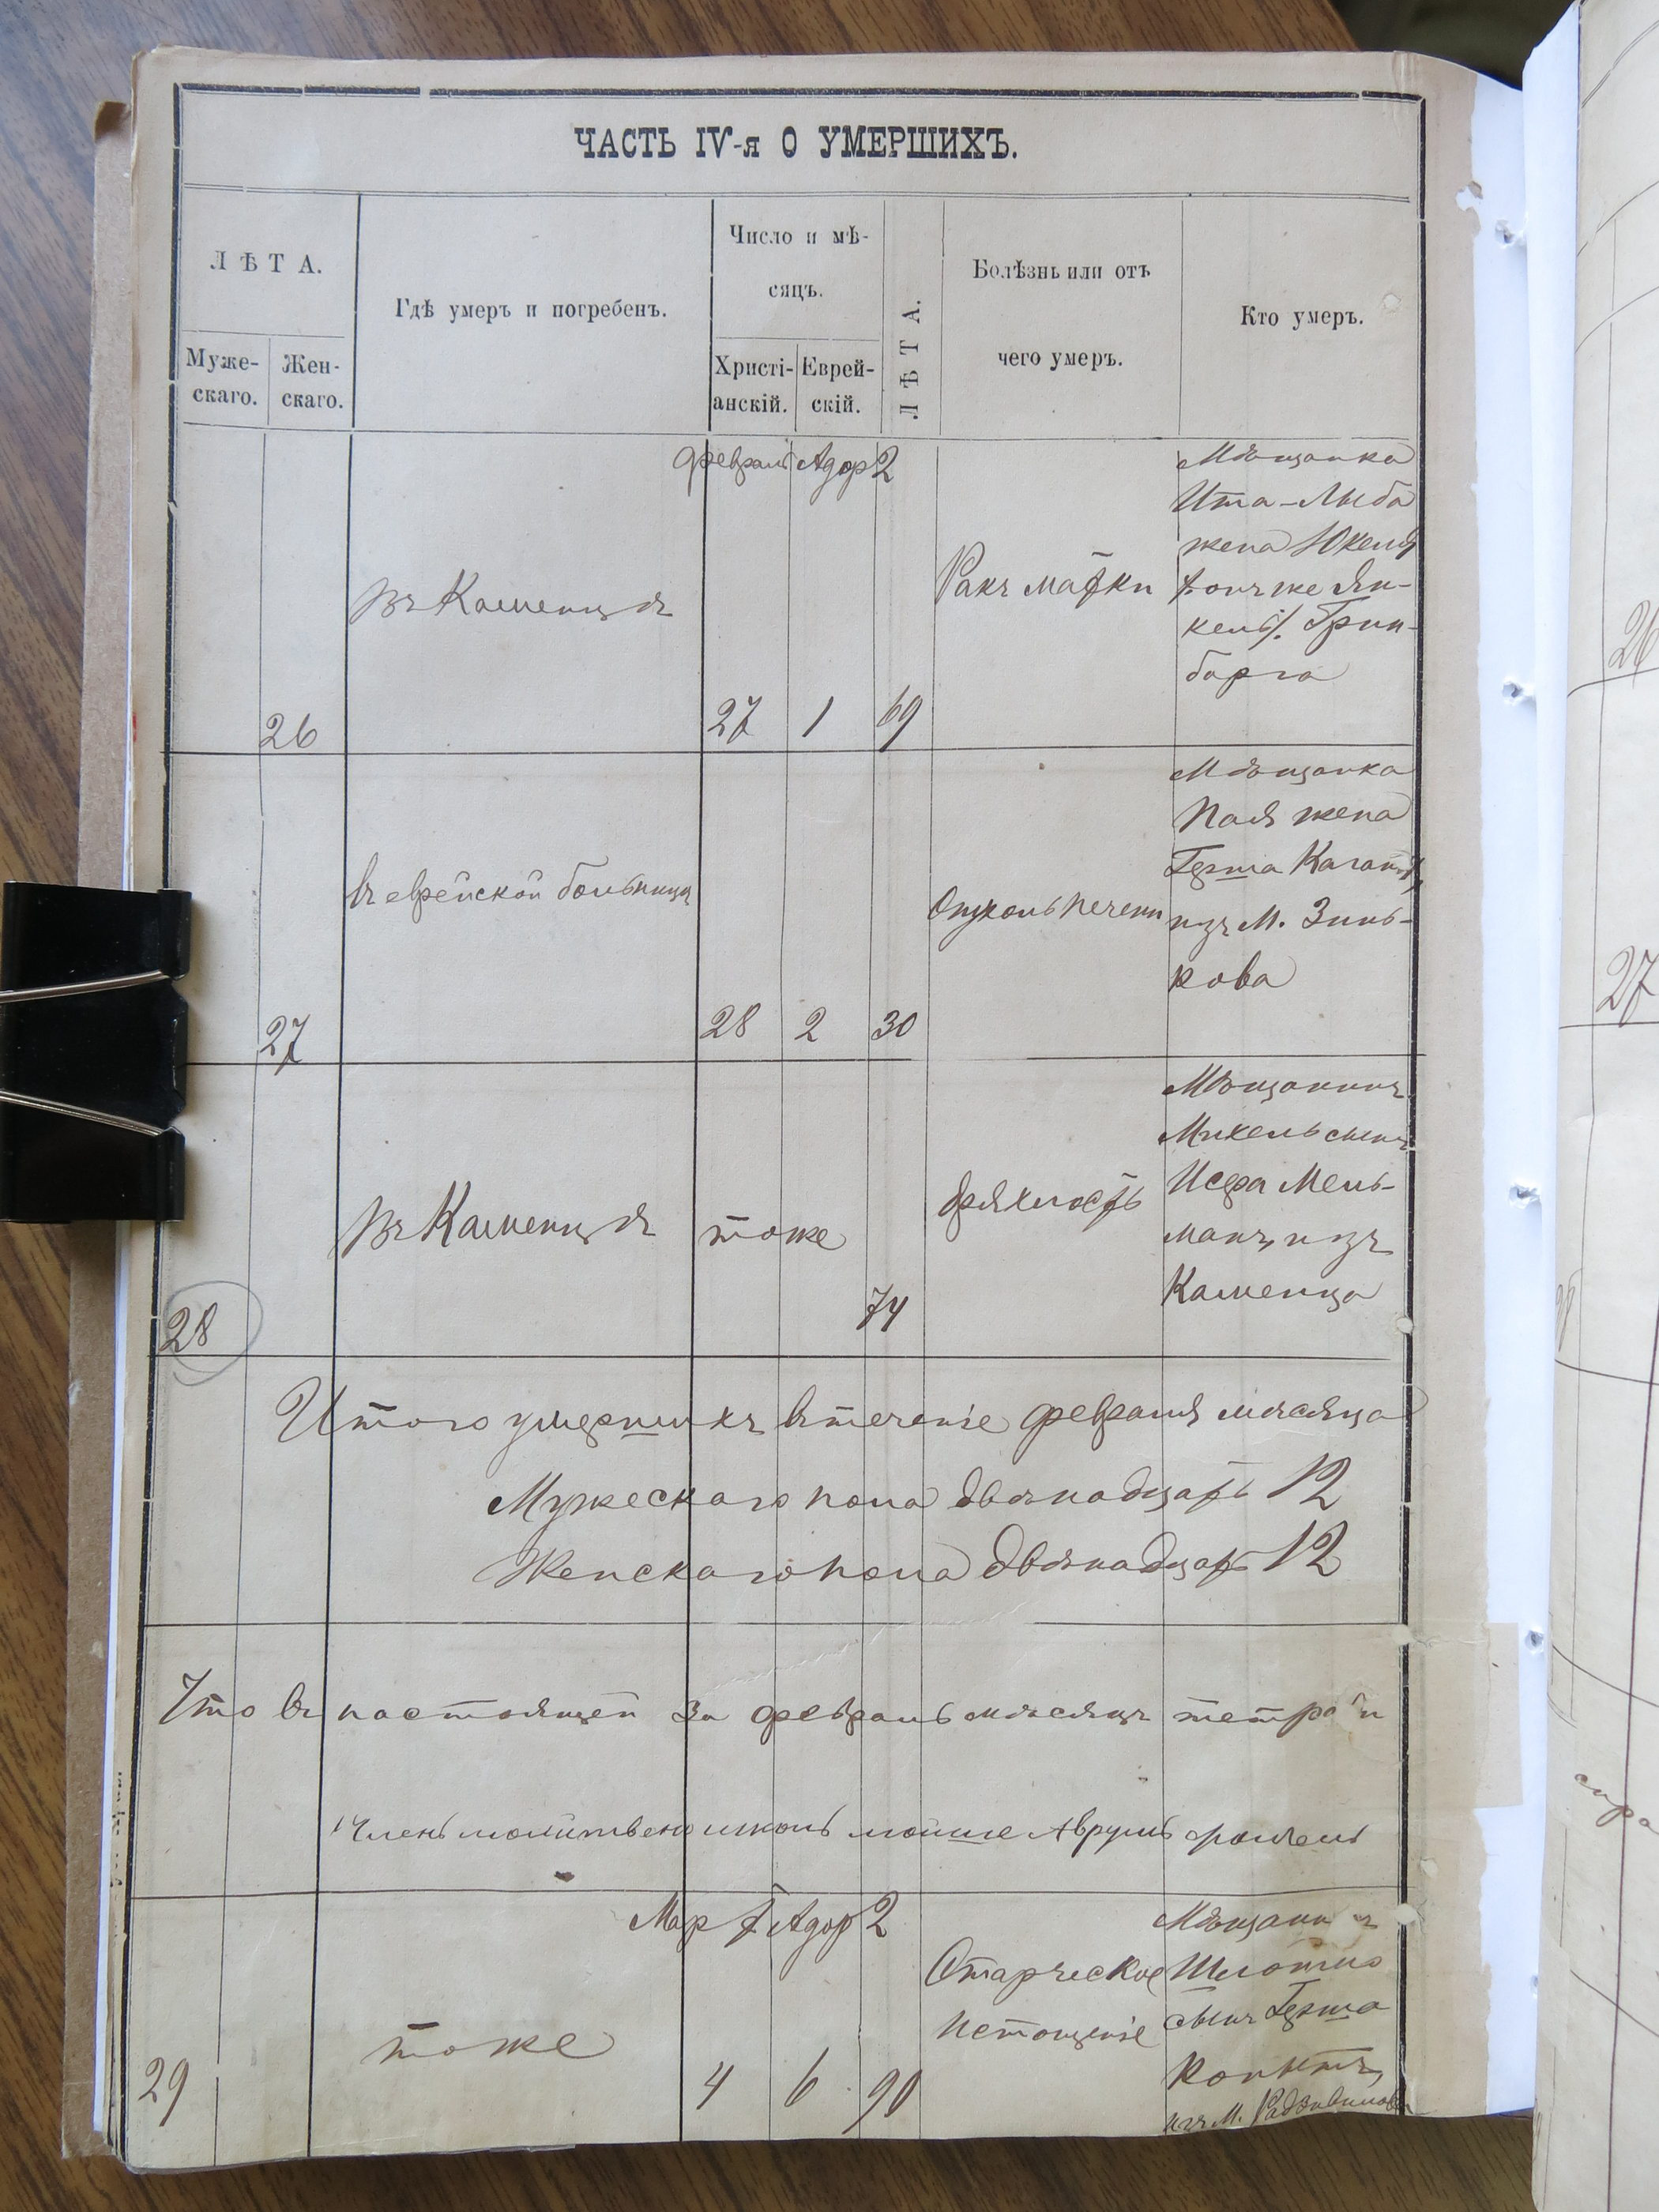 ЧАСТЬ IV-я О УМЕРШИХЪ.
ЛѢТА.
Муже-
скаго.
Жен-
скаго.
Гдѣ умеръ и погребенъ.
Число и мѣ-
сяцъ.
Христі-
анскій.
Еврей-
скій.
ЛѢТА.
Болѣзнь или отъ
чего умеръ.
Кто умеръ.
Февраль Адор 2
26
въ Каменцѣ
27 1 69
Ракъ матки
Мѣщанка
Ита-Лыба
жена Юкеля
онъ же Ян-
кель/. Грин-
барга
27
въ еврейской больницѣ
28 2 30
Опухоль печени
Мѣщанка
Пая жена
Герша Каган
изъ М. Зинь-
кова
28
въ Каменцѣ
тоже
74
дряхлость
Мѣщанинъ
Михель сынъ
Исра Мель-
манъ, изъ
Каменца
Итого умершихъ втеченіе февраля мѣсяца
Мужескаго пола двѣнадцать 12
Женскаго пола двѣнадцать 12
Что въ настоящей за февраль мѣсяцъ тетради
Членъ школъ мойше Аврумъ
Мартъ Адор 2
29
тоже
4 6 90
Старческое
истощеніе
Мѣщанинъ
Шлоймо
сынъ Герша
Копытъ,
изъ М. Радзивилова
26
27